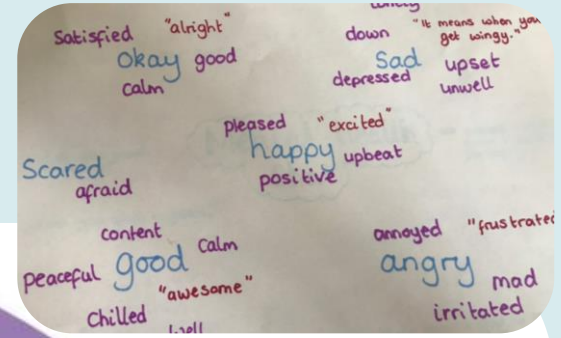 Satisfied "alright"
Okay good
calm
lonely
down "It means when you
get wingy."
Sad upset
depressed unwell
pleased "excited"
happy upbeat
positive
Scared
afraid
content
calm
peaceful good
"awesome"
Chilled
well
annoyed "frustrated
angry mad
irritated